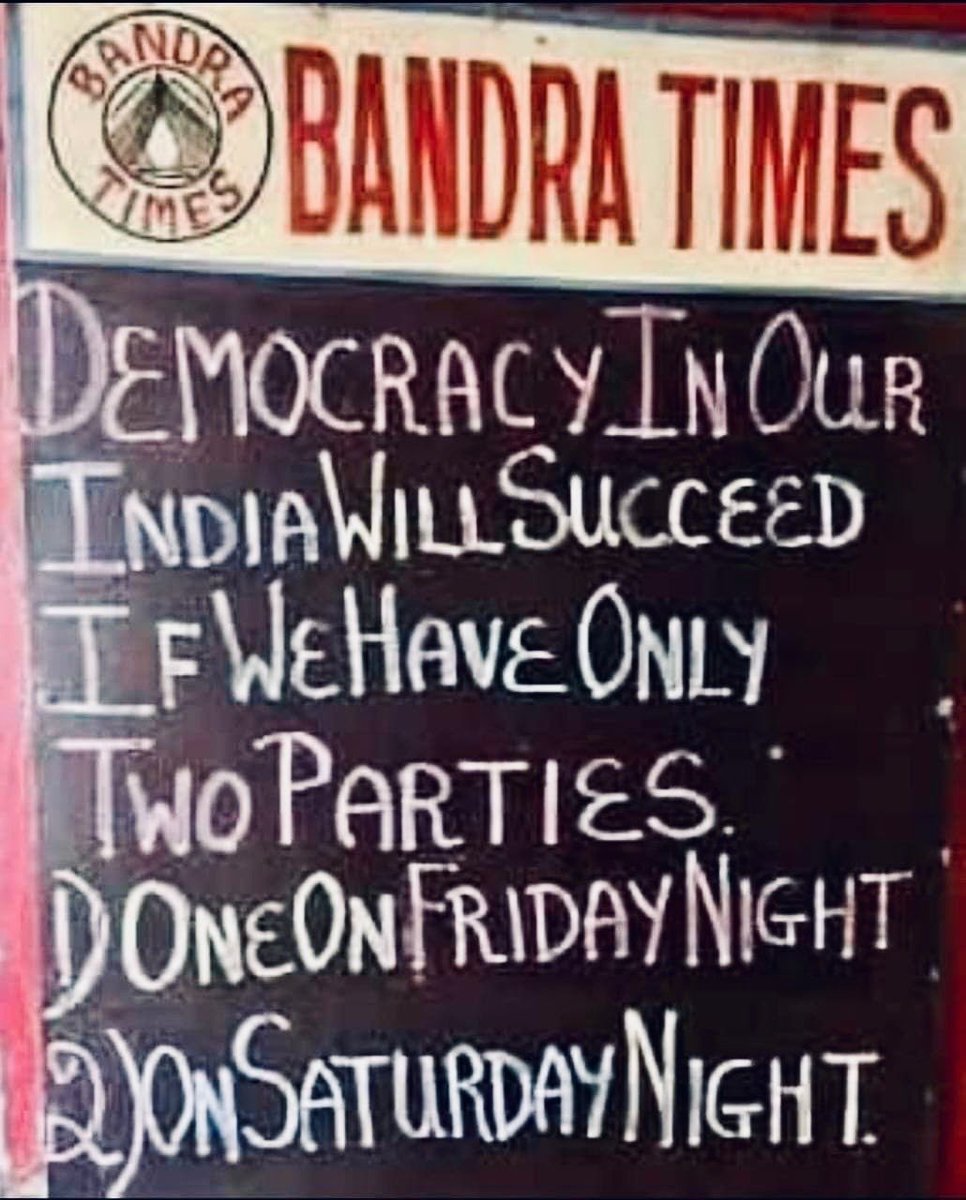 BANDRA TIMES
BANDRA TIMES
DEMOCRACY IN OUR
INDIA WILL SUCCEED
IF WE HAVE ONLY
TWO PARTIES.
1) ONE ON FRIDAY NIGHT
2) ON SATURDAY NIGHT.